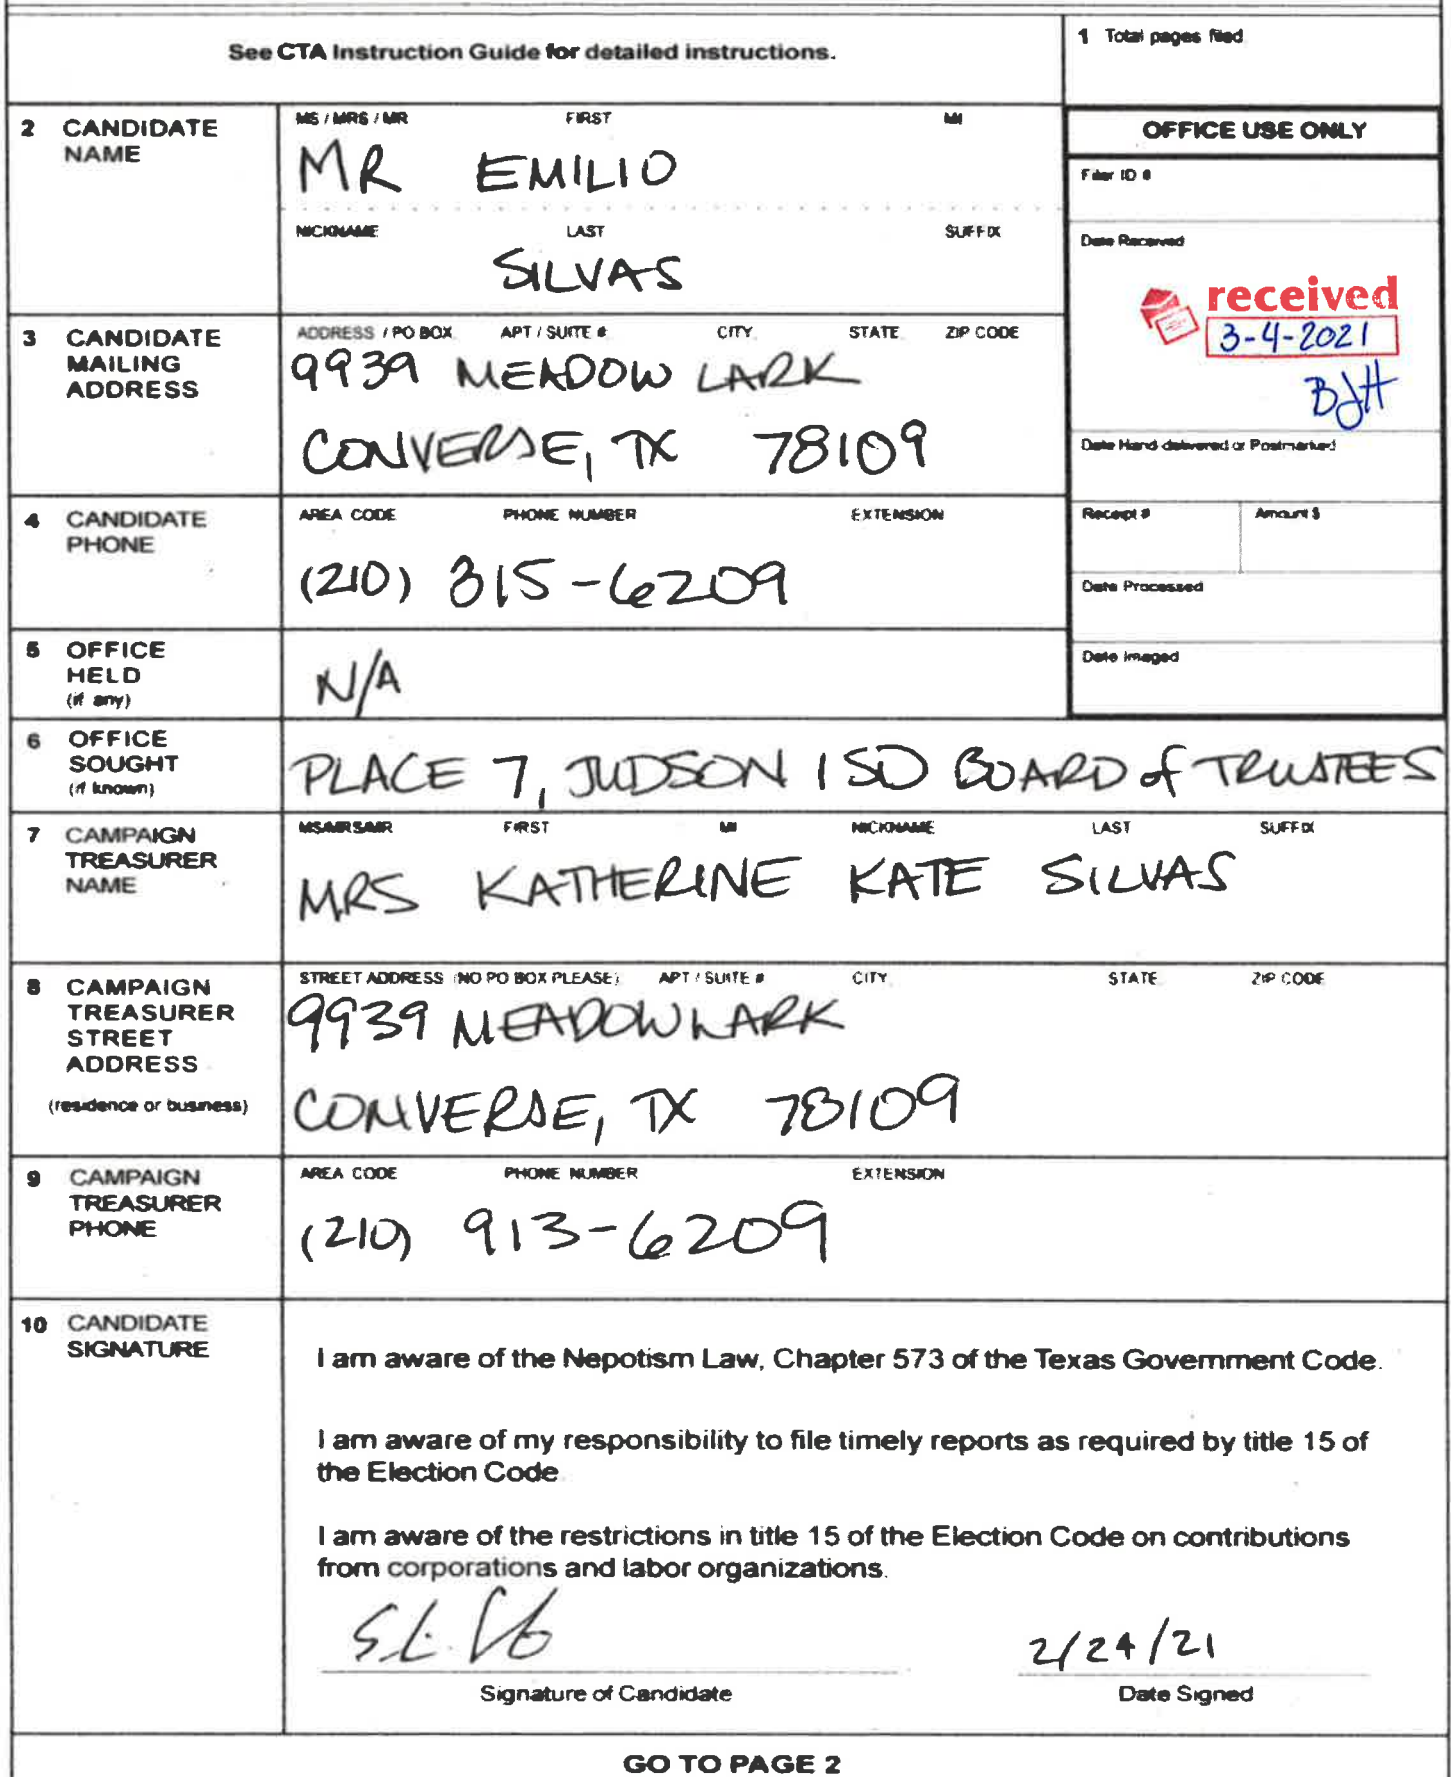 See CTA Instruction Guide for detailed instructions.
1 Total pages filed
2 CANDIDATE NAME
MS / MRS / MR FIRST MI
MR EMILIO
NICKNAME LAST SUFFIX
SILVAS
OFFICE USE ONLY
Filer ID #
Date Received
received
3-4-2021
BJH
Date Hand-delivered or Postmarked
Receipt # Amount $
Date Processed
Date Imaged
3 CANDIDATE MAILING ADDRESS
ADDRESS / PO BOX APT / SUITE # CITY STATE ZIP CODE
9939 MEADOW LARK
CONVERSE, TX 78109
4 CANDIDATE PHONE
AREA CODE PHONE NUMBER EXTENSION
(210) 315-6209
5 OFFICE HELD (if any)
N/A
6 OFFICE SOUGHT (if known)
PLACE 7, JUDSON ISD BOARD of TRUSTEES
7 CAMPAIGN TREASURER NAME
MS/MRS/MR FIRST MI NICKNAME LAST SUFFIX
MRS KATHERINE KATE SILVAS
8 CAMPAIGN TREASURER STREET ADDRESS
(residence or business)
STREET ADDRESS (NO PO BOX PLEASE) APT / SUITE # CITY STATE ZIP CODE
9939 MEADOWLARK
CONVERSE, TX 78109
9 CAMPAIGN TREASURER PHONE
AREA CODE PHONE NUMBER EXTENSION
(210) 913-6209
10 CANDIDATE SIGNATURE
I am aware of the Nepotism Law, Chapter 573 of the Texas Government Code.
I am aware of my responsibility to file timely reports as required by title 15 of
the Election Code
I am aware of the restrictions in title 15 of the Election Code on contributions
from corporations and labor organizations.
2/24/21
Signature of Candidate Date Signed
GO TO PAGE 2